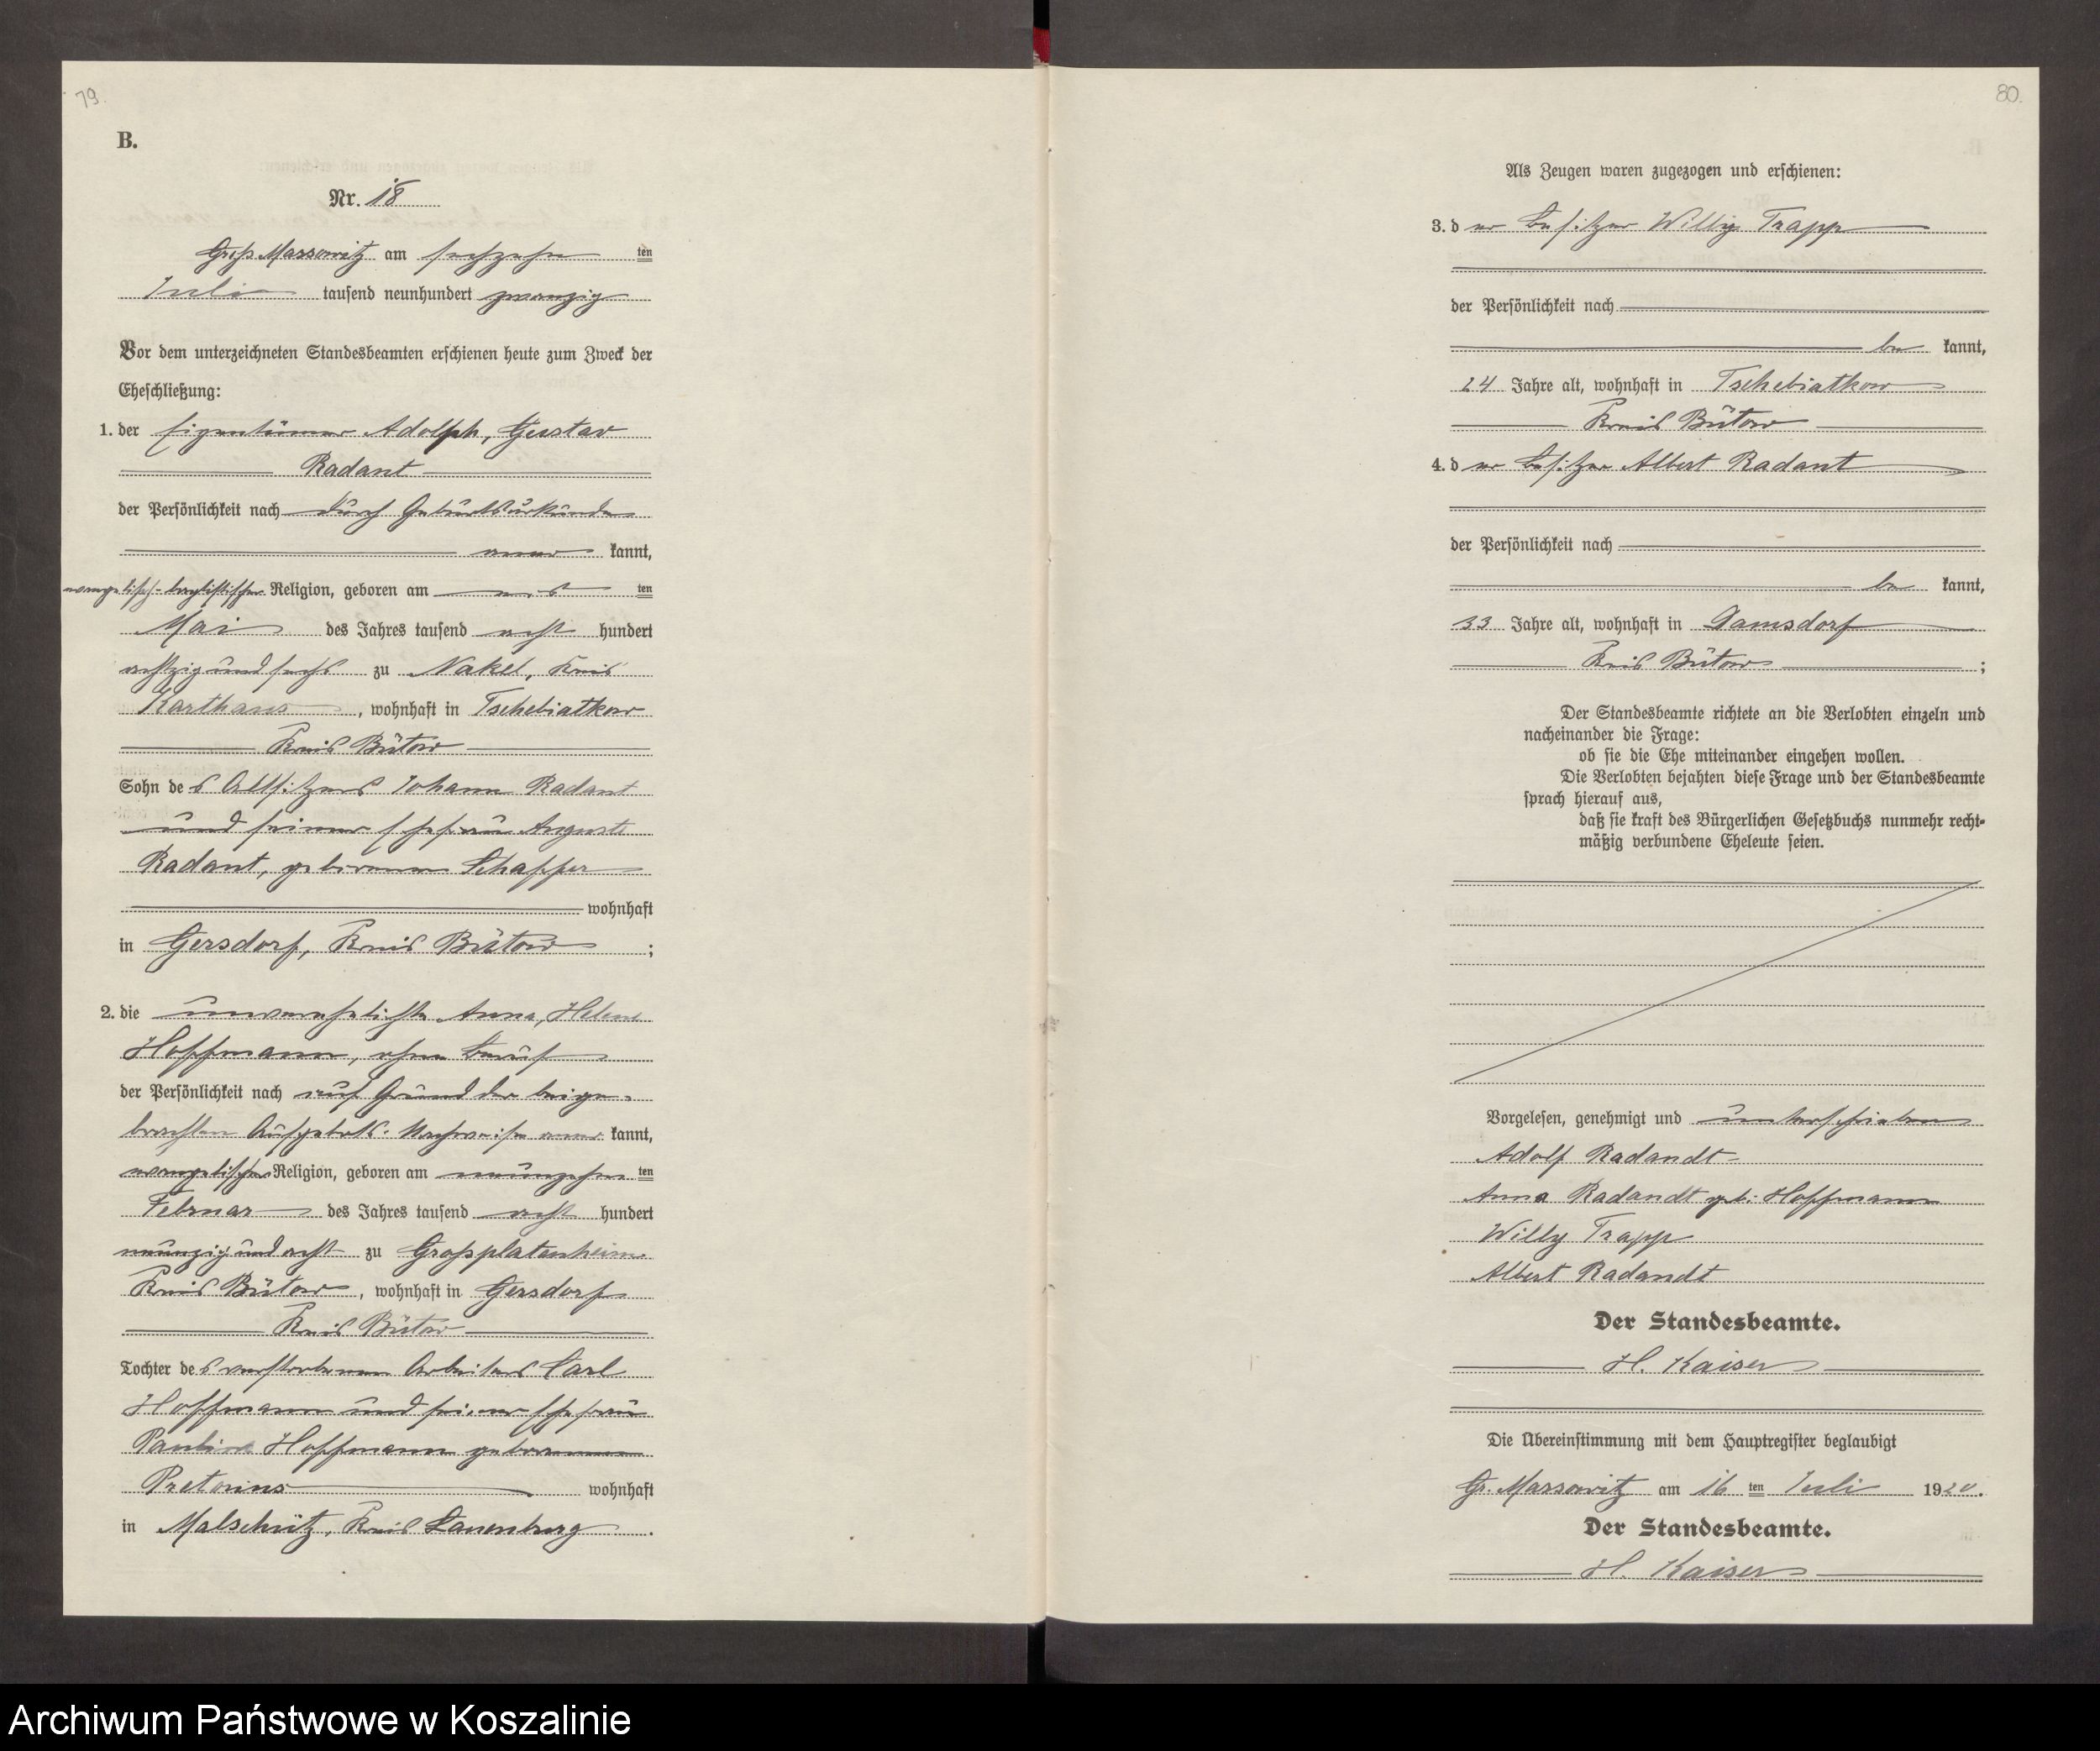 79.
B.
Nr. 18
Groß Massowitz am sechzehn ten
Juli tausend neunhundert zwanzig
Vor dem unterzeichneten Standesbeamten erschienen heute zum Zweck der
Eheschließung:
1. der Eigentümer Adolph, Gustav
Radant
der Persönlichkeit nach durch Geburtsurkunde
aner kannt,
evangelisch-baptistischer Religion, geboren am ten
Mai des Jahres tausend acht hundert
achtzig und sechs zu Nakel, Kreis
Karthaus, wohnhaft in Tschebiatkow
Kreis Bütow
Sohn des Altsitzers Johann Radant
und seiner Ehefrau Auguste
Radant, geborenen Schaffer
wohnhaft
in Gersdorf, Kreis Bütow;
2. die unverehelichte Anna, Helene
Hoffmann, ohne Beruf
der Persönlichkeit nach auf Grund der beige-
brachten Aufgebots-Nachweise aner kannt,
evangelischer Religion, geboren am neunzehn ten
Februar des Jahres tausend acht hundert
neunzig und acht zu Grossplatenheim
Kreis Bütow, wohnhaft in Gersdorf
Kreis Bütow
Tochter des verstorbenen Arbeiters Carl
Hoffmann und seiner Ehefrau
Pauline Hoffmann geborenen
Pretorius wohnhaft
in Malschütz, Kreis Lauenburg.
80.
Als Zeugen waren zugezogen und erschienen:
3. der Besitzer Willy Trapp
der Persönlichkeit nach
be kannt,
24 Jahre alt, wohnhaft in Tschebiatkow
Kreis Bütow
4. der Besitzer Albert Radant
der Persönlichkeit nach
be kannt,
33 Jahre alt, wohnhaft in Damsdorf
Kreis Bütow;
Der Standesbeamte richtete an die Verlobten einzeln und
nacheinander die Frage:
ob sie die Ehe miteinander eingehen wollen.
Die Verlobten bejahten diese Frage und der Standesbeamte
sprach hierauf aus,
daß sie kraft des Bürgerlichen Gesetzbuchs nunmehr recht-
mäßig verbundene Eheleute seien.
Vorgelesen, genehmigt und unterschrieben
Adolf Radandt
Anna Radandt geb. Hoffmann
Willy Trapp
Albert Radandt
Der Standesbeamte.
H. Kaiser
Die Übereinstimmung mit dem Hauptregister beglaubigt
Gr. Massowitz am 16 ten Juli 1920.
Der Standesbeamte.
H. Kaiser
Archiwum Państwowe w Koszalinie